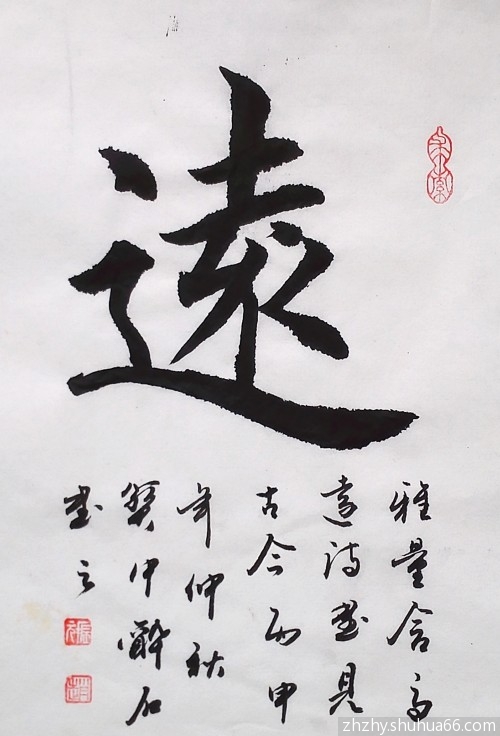 遠
雅量含高
遠詩書見
古今丙申
年仲秋
醉石
書
zhzhy.shuhua66.com